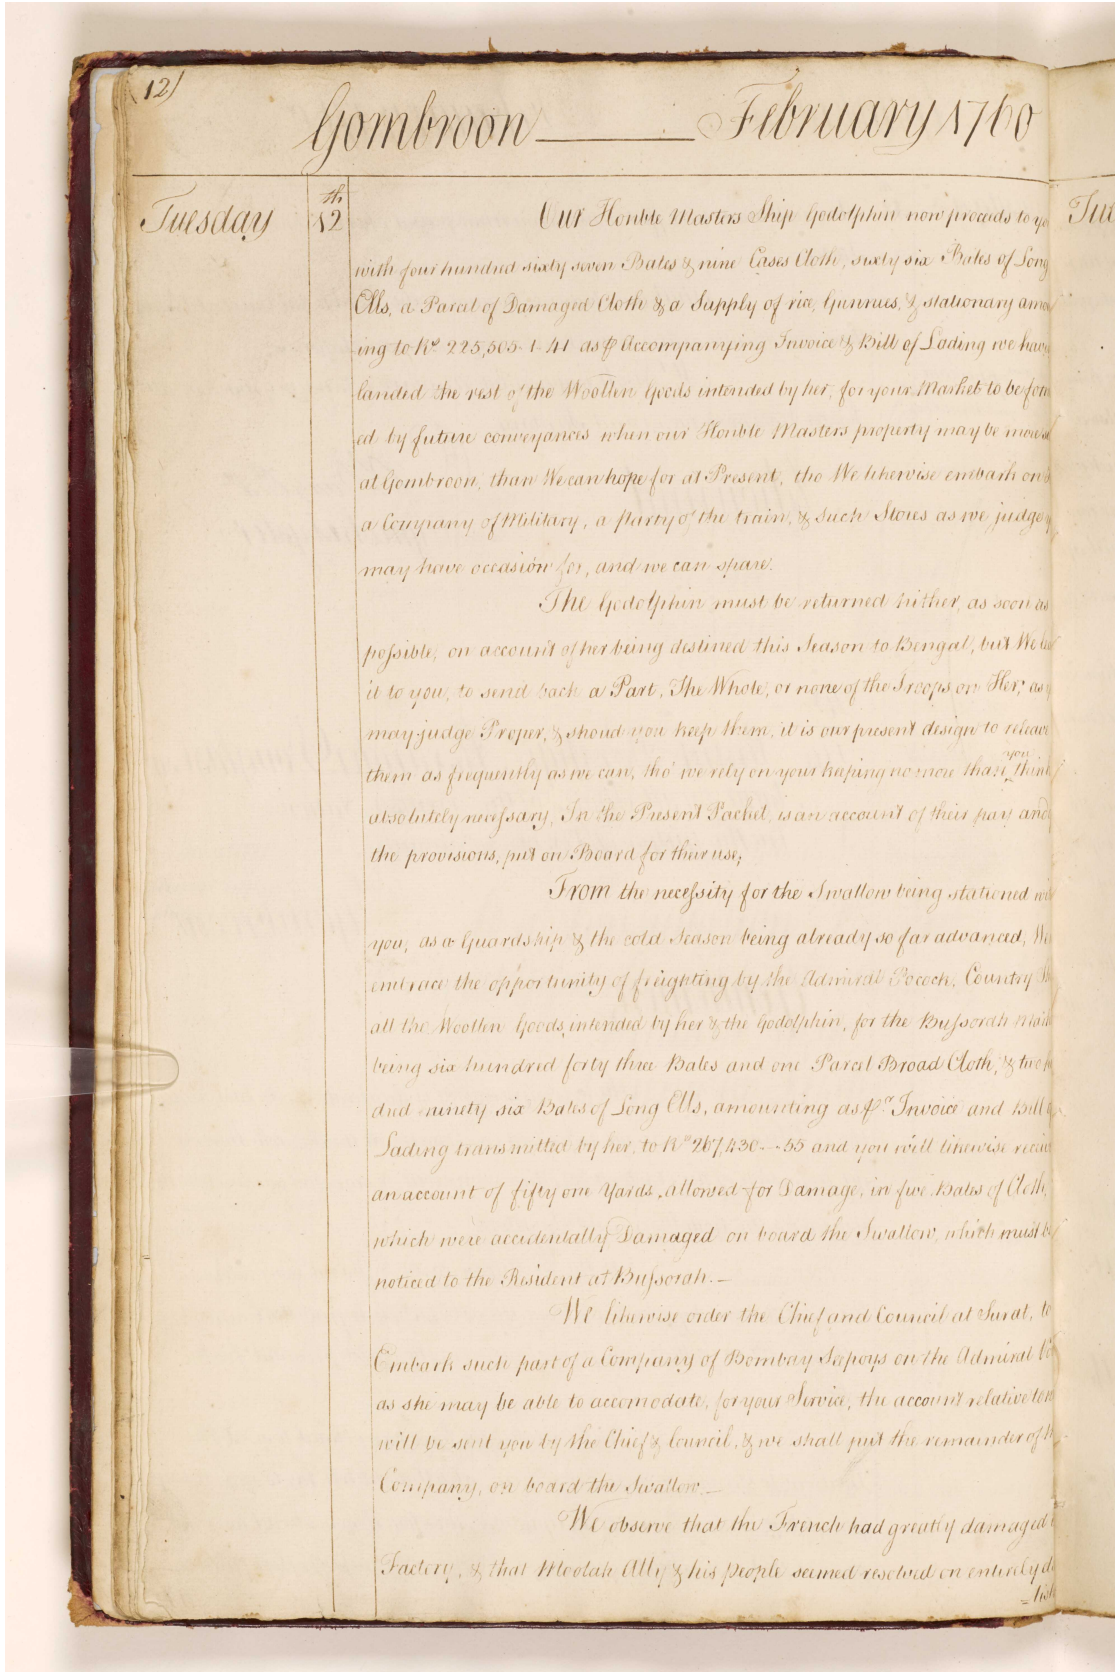 12)
Gombroon ——— February 1760
Tuesday 12th Our Honble Masters Ship Godolphin now proceeds to yo
with four hundred sixty seven Bales & nine Cases Cloth, sixty six Bales of Long
Ells, a Parcel of Damaged Cloth & a Supply of rice, Gunnies, & stationary amo
ing to Rs 225,505-1-41 as P Accompanying Invoice & Bill of Lading we have
landed the rest of the Woollen Goods intended by her, for your Market to be forw
ed by future conveyances when our Honble Masters property may be more
at Gombroon, than We can hope for at Present, tho We likewise embark on
a Company of Military, a party of the train, & such Stores as we judge
may have occasion for, and we can spare.
The Godolphin must be returned hither, as soon as
possible, on account of her being destined this Season to Bengal, but We lea
it to you, to send back a Part, The Whole, or none of the Troops on Her, as
may judge Proper, & shoud you keep them, it is our present design to releave
them as frequently as we can, tho' we rely on your keeping no more than you think
absolutely necessary, In the Present Packet, is an account of their pay and
the provisions, put on Board for their use;
From the necessity for the Swallow being stationed wi
you, as a Guardship & the cold Season being already so far advanced, We
embrace the opportunity of freighting by the Admiral Pocock, Country Sh
all the Woollen Goods, intended by her & the Godolphin, for the Bussorah Mark
being six hundred forty three Bales and one Parcel Broad Cloth, & two h
dred ninety six Bales of Long Ells, amounting as Pr Invoice and Bill
Lading transmitted by her, to Rs 267,430--55 and you will likewise receiv
an account of fifty one Yards, allowed for Damage, in five Bales of Cloth,
which were accidentally Damaged on board the Swallow, which must be
noticed to the Resident at Bussorah.—
We likewise order the Chief and Council at Surat, to
Embark such part of a Company of Bombay Seepoys on the Admiral
as she may be able to accomodate, for your Service, the account relative to
will be sent you by the Chief & Council, & we shall put the remainder of th
Company, on board the Swallow.—
We observe that the French had greatly damaged
Factory, & that Moolah Ally & his people seemed resolved on entirely de
Tue